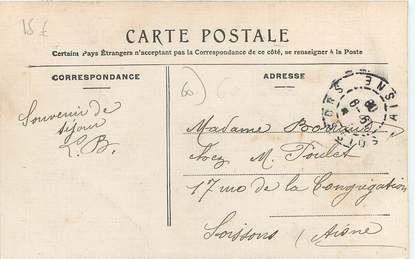 15 €
CARTE POSTALE
Certains Pays Étrangers n'acceptant pas la Correspondance de ce côté, se renseigner à la Poste
CORRESPONDANCE
ADRESSE
60
Souvenir de
séjour
L. B.
Madame
chez M. Poulet
17 rue de la Congrégation
Soissons (Aisne
SOISSONS
AISNE